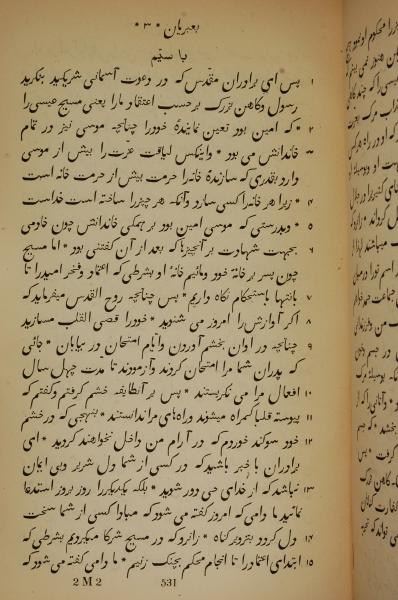 بعبریان * ۳ *
باب سیّم
۱ پس ای برادران مقدّس که در دعوت آسمانی شریکید بنگرید
رسول و کاهن بزرک بر حسب اعتقاد مارا یعنی مسیح عیسی را
۲ * که امین بود تعین نمایندهٔ خودرا چنانچه موسی نیز در تمام
۳ خاندانش می بود * و اینکس لیاقت عزّت را بیش از موسی
دارد بقدری که سازندهٔ خانه را حرمت بیش از حرمت خانه است
۴ * زیرا هر خانه را کسی سازد و آنکه هر چیز را ساخته است خداست
۵ * و بدرستی که موسی امین بود بر همکی خاندانش چون خادمی
۶ بجهت شهادت بر آنچیزها که بعد از آن کفتنی بود * اما مسیح
چون پسر بر خانهٔ خود و مائیم خانهٔ او بشرطی که اعتماد و فخر امید را تا
۷ بانتها با ستحکام نکاه داریم * پس چنانچه روح القدس میفرماید که
۸ اکر آوازش را امروز می شنوید * خودرا قصی القلب مسازید
۹ چنانچه در اوان بخشم آوردن و ایّام امتحان در بیابان * جائی
که پدران شما مرا امتحان کردند و آزمودند تا مدت چهل سال
۱۰ افعال مرا می نکریستند * پس بر آنطایفه خشم کرفتم و کفتم که
۱۱ پیوسته قلباً کمراه میشوند و راه های مرا ندانستند * بنهجی که در خشم
۱۲ خود سوکند خوردم که در آرام من داخل نخواهند کردید * ای
برادران با خبر باشید که در کسی از شما دل شریر و بی ایمان
۱۳ نباشد که از خدای حی دور شوید * بلکه یکدیکر را روز بروز استدعا
نمائید ما دامی که امروز کفته می شود که مبادا کسی از شما سخت
۱۴ دل کردد بتزویر کناه * زانرو که در مسیح شرکا میکردیم بشرطی که
۱۵ ابتدای اعتماد را تا انجام محکم بچنک زنیم * ما دامی کفته می شود که
2 M 2 531